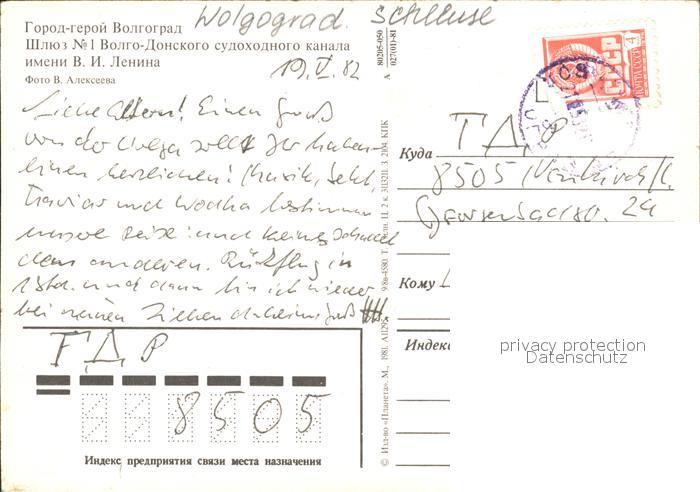 Wolgograd. Schleuse
Город-герой Волгоград
Шлюз №1 Волго-Донского судоходного канала
имени В. И. Ленина
Фото В. Алексеева
19. V. 82
Liebe Eltern! Einen Gruß
von der Wolga
einen herzlichen! Musik, Sekt,
Kaviar und Wodka bestimmen
unsere Reise und keines schadet
dem anderen. Rückflug in
und dann bin ich wieder
bei meinen Lieben daheim. Gruß
ГДР
8505
Индекс предприятия связи места назначения
80205-050
А 027(01)-81
© Изд-во «Планета». М., 1981.
3. 2104. КПК
СССР
ПОЧТА СССР
4
Куда ГДР
8505 Neukirch/L.
24
Кому
Индекс
privacy protection
Datenschutz